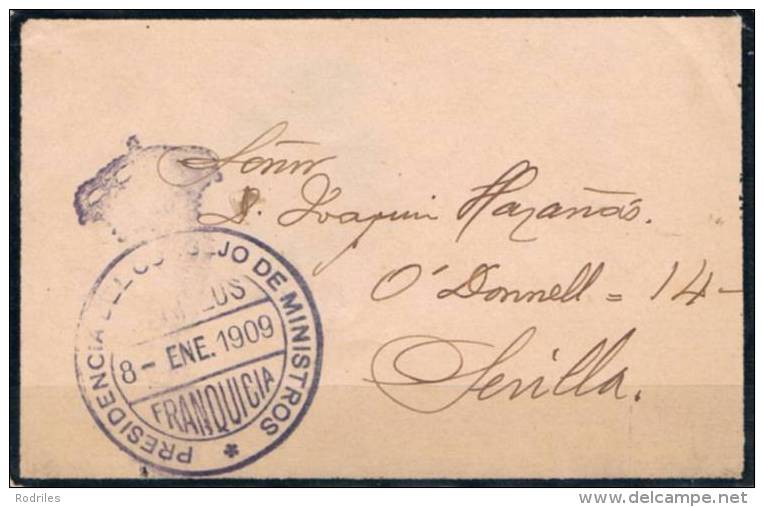 Señor
D. Joaquin Hazañas.
O'Donnell = 14 -
Sevilla.
PRESIDENCIA DEL CONSEJO DE MINISTROS *
8 - ENE. 1909
FRANQUICIA
Rodriles
delcampe.net